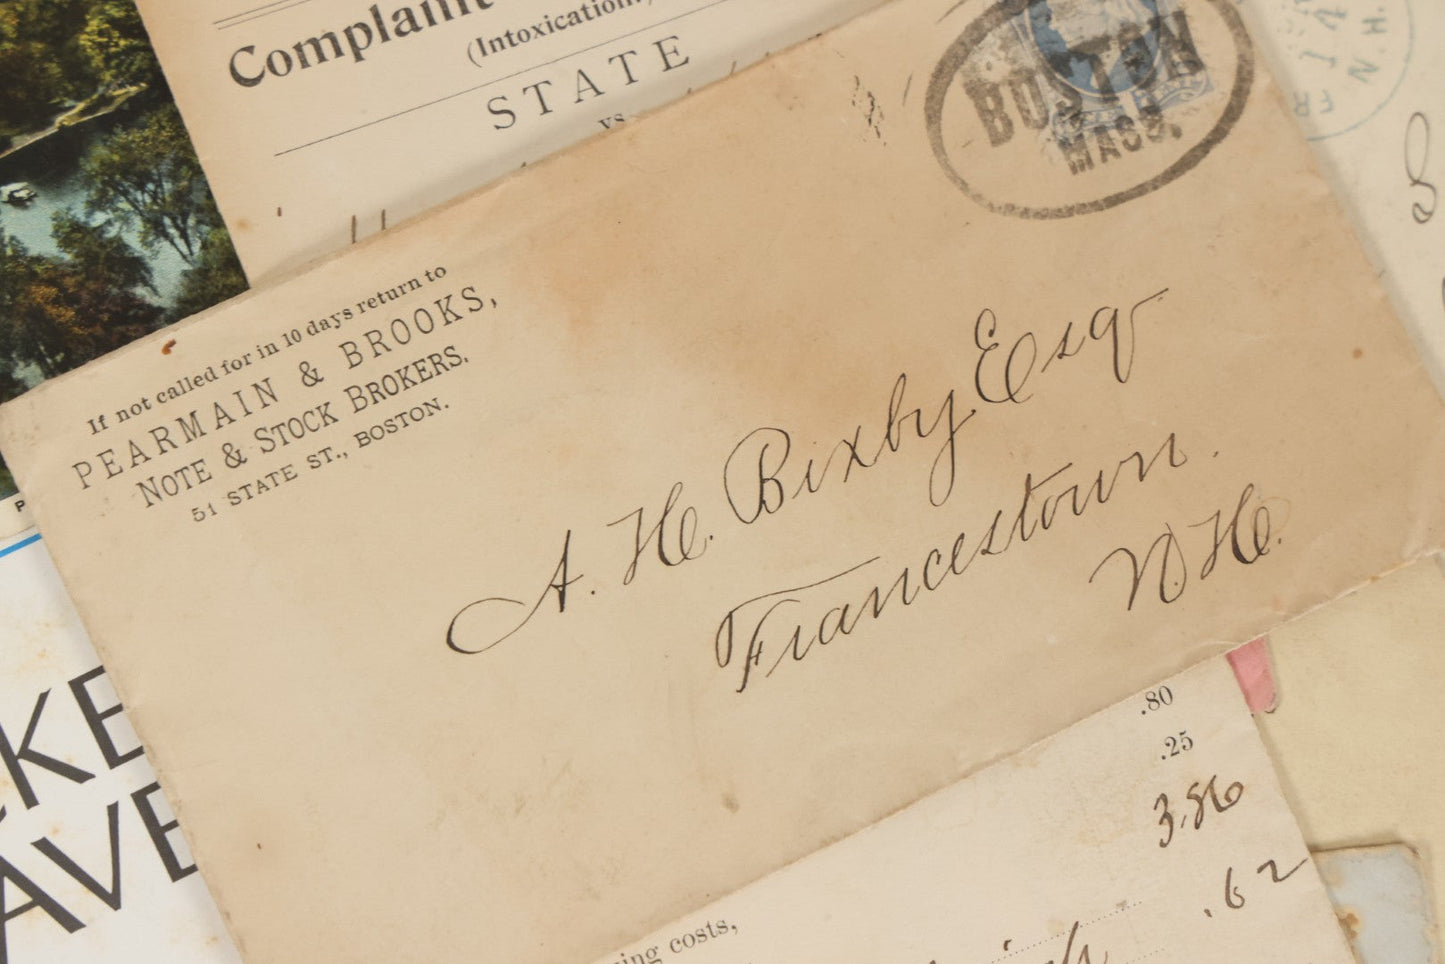 Complaint
(Intoxication.)
STATE
vs.
BOSTON
MASS.
14
N.H.
If not called for in 10 days return to
PEARMAIN & BROOKS,
NOTE & STOCK BROKERS,
51 STATE ST., BOSTON.
A. H. Bixby Esq
Francestown.
N.H.
.80
.25
3.86
.62
costs,